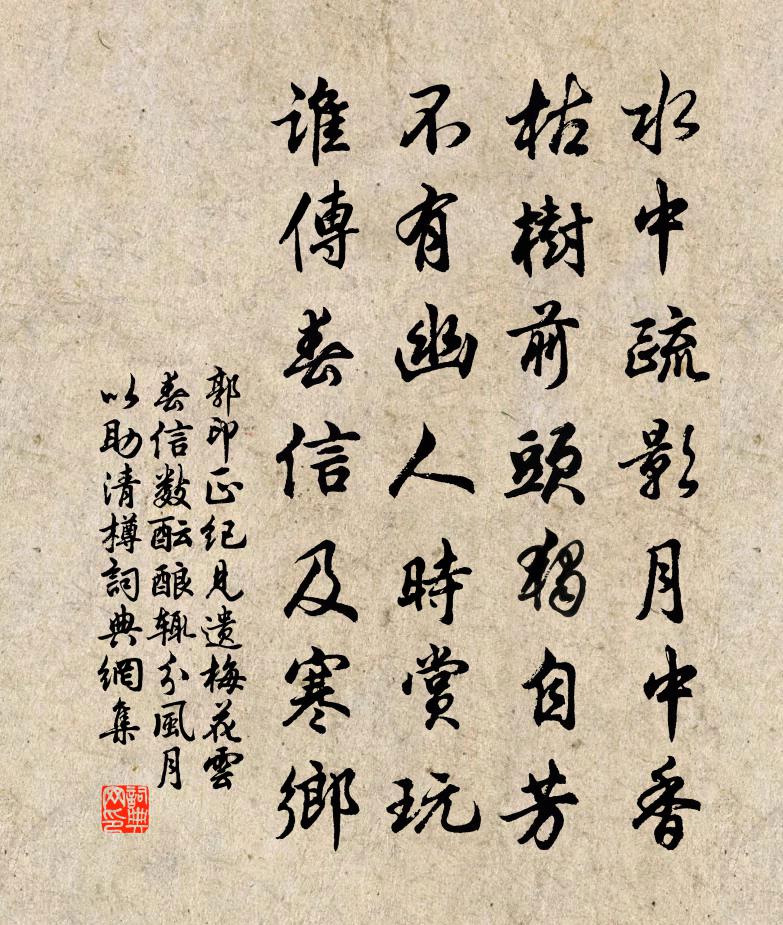 水中疏影月中香
枯樹前頭獨自芳
不有幽人時賞玩
誰傳春信及寒鄉
郭印正紀見遺梅花雲
春信數酝酿辄分風月
以助清樽詞典網集
詞典
网印